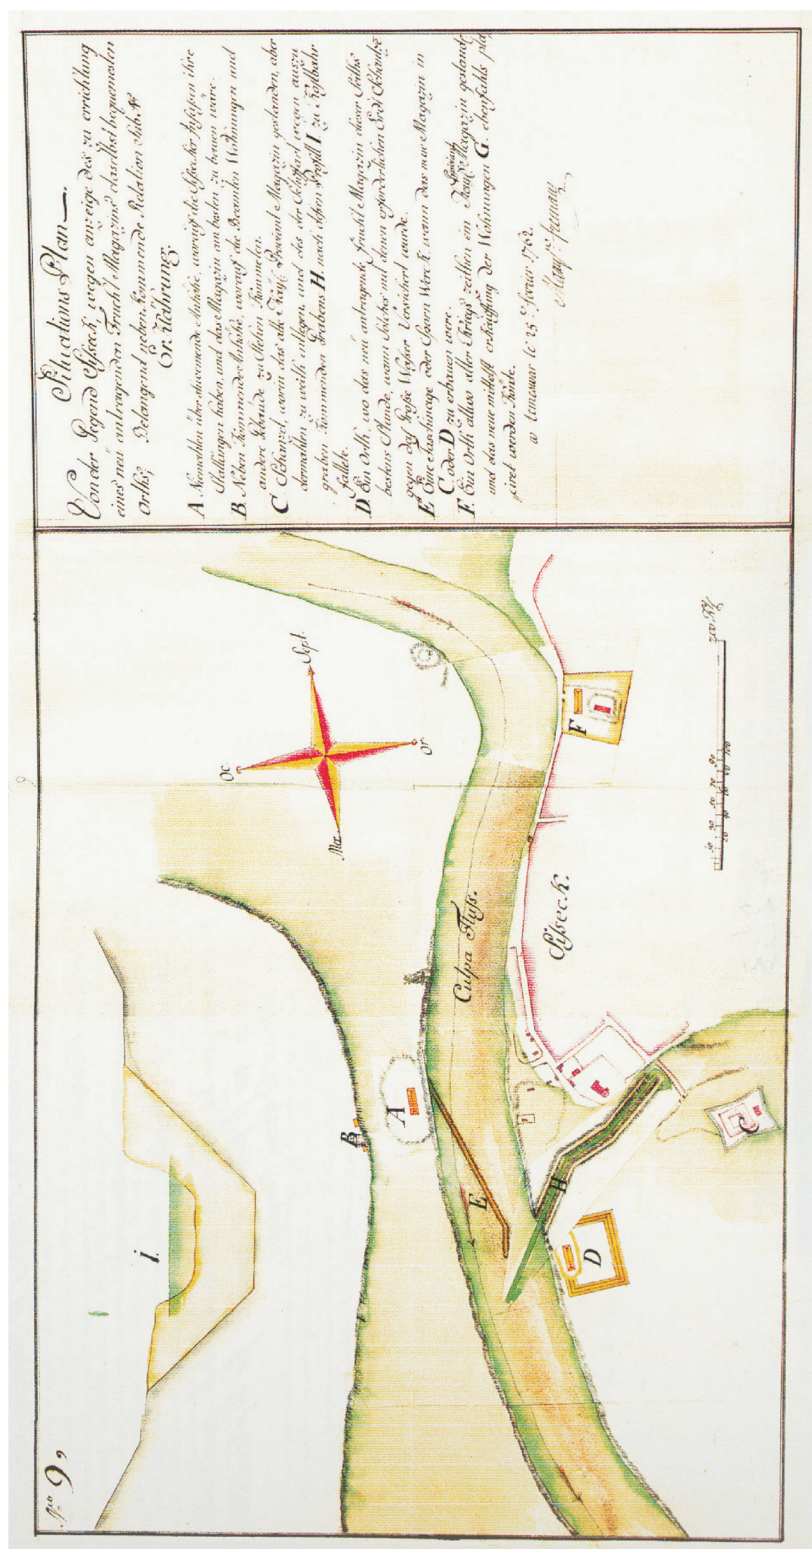 Situations Plan
Von der Gegend Sisseck, wegen anzeige des zu errichtung
eines neü antragenden Frucht Magazins daselbst bequemesten
Orths; Belangend neben kommende Relation Sub N°
Erklährung.
A Niemahlen über schwemende Anhöhe, worauf die Sisecker ihre
Stellungen haben, und das Magazin am besten zu bauen wäre.
B Neben kommende Anhöhe, worauf die Beamten Wohnungen und
andere Gebäude zu stehen kämmeten.
C Schanzel, worin das alte Proviant Magazin gestanden, aber
dermahlen zu weith entlegen, und das der Zufart wegen auszu
graben kommenden Grabens H nach dessen Profill I zu Kostbahr
fallete.
D Ein Orth, wo das neü antragende Frucht Magazin dieser Seiths
bestens Stande, wann solches mit denen erforderlichen Erd Schanzl
gegen das große Wasser Versichert wurde.
E Eine daschinage oder Sporn Werck, wann das neue Magazin in
C oder D zu erbauen wäre.
F Ein Orth allwo alter Kriegs zeithen ein Proviant Magazin gestanden
und das neue mittelst erkauffung der Wohnungen G ebenfahls pla
ciret werden könte.
1762.
N.ro 9,
i.
Oc.
Sept.
Or.
Me.
B
A
E
Culpa Fluss.
Sisseck.
F
H
D
C